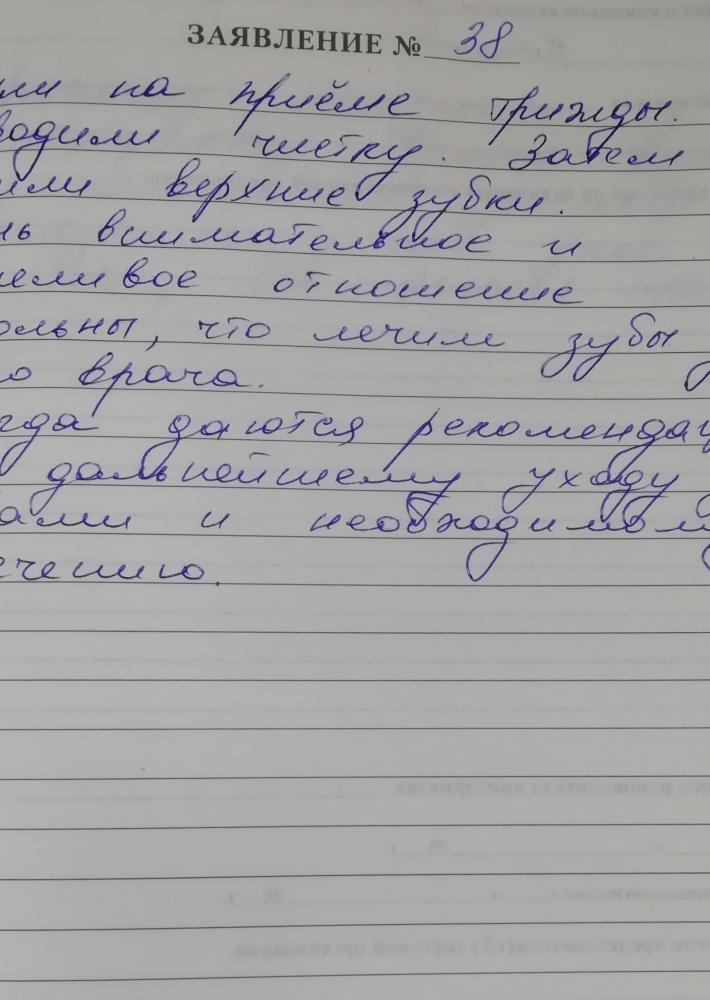 ЗАЯВЛЕНИЕ № 38
ли на приёме трижды.
водили чистку. Затем
или верхние зубки.
нь внимательное и
еливое отношение
ольны, что лечим зубы у
го врача.
гда даются рекомендац
дальнейшему уходу
ами и необходимом
ечению.